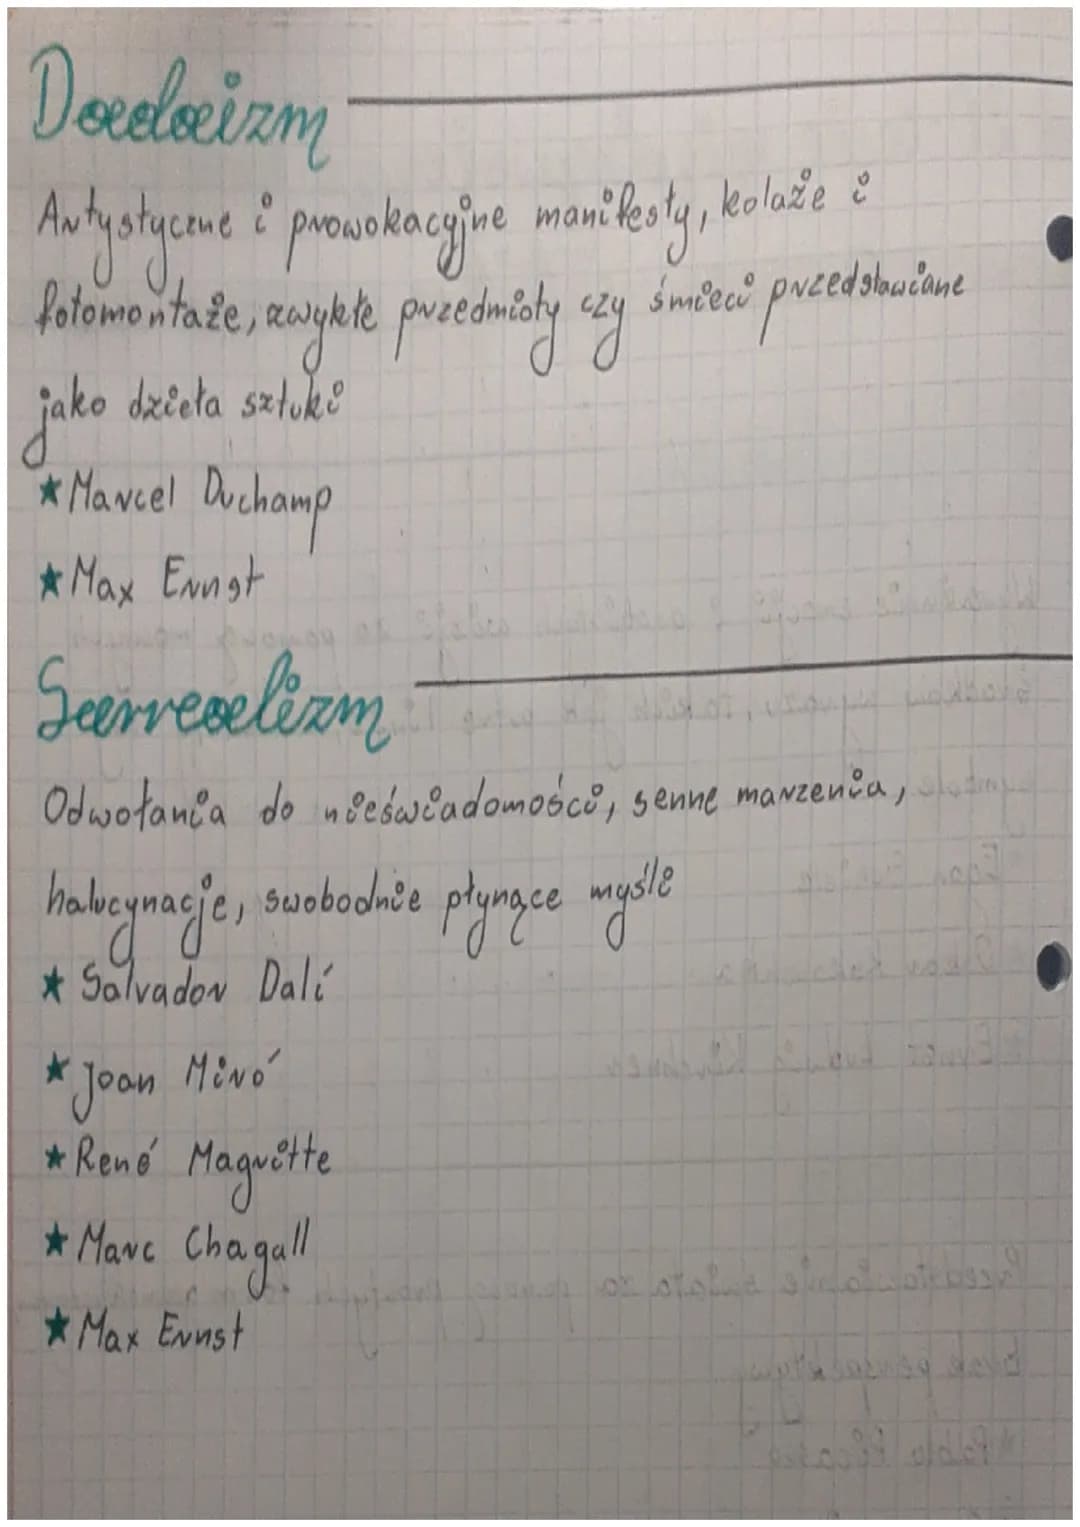 Dadaizm
Artystyczne i prowokacyjne manifesty, kolaże i
fotomontaże, zwykłe przedmioty czy śmieci przedstawiane
jako dzieła sztuki
★ Marcel Duchamp
★ Max Ernst
Surrealizm
Odwołania do nieświadomości, senne marzenia,
halucynacje, swobodnie płynące myśli
★ Salvador Dalí
★ Joan Miró
★ René Magritte
★ Marc Chagall
★ Max Ernst